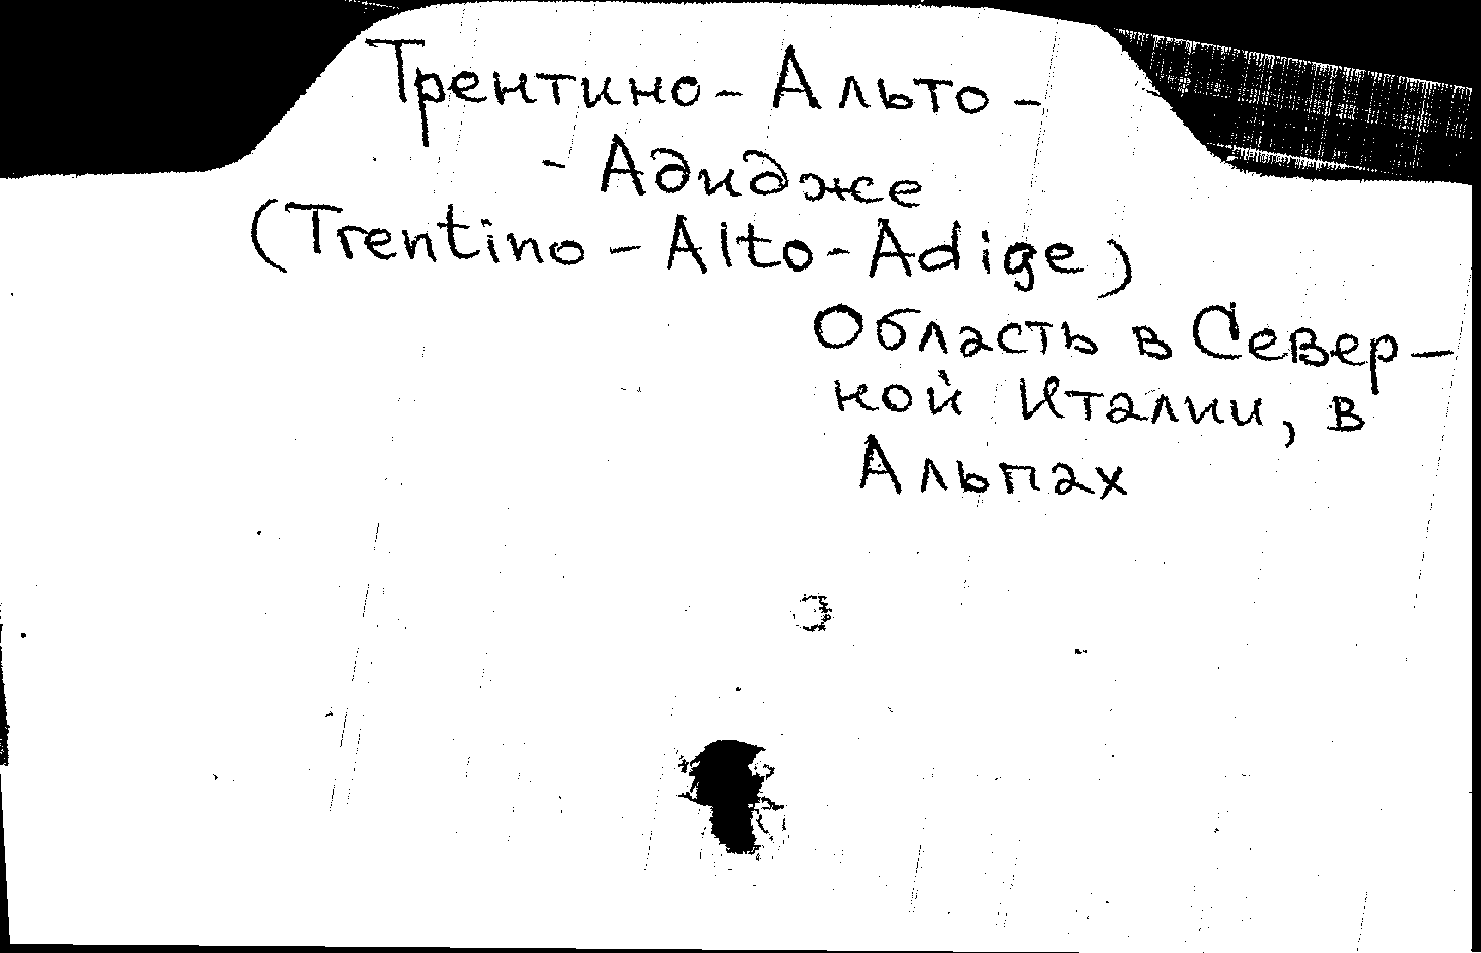 Трентино-Альто-
-Адидже
(Trentino-Alto-Adige)
Область в Север-
ной Италии, в
Альпах